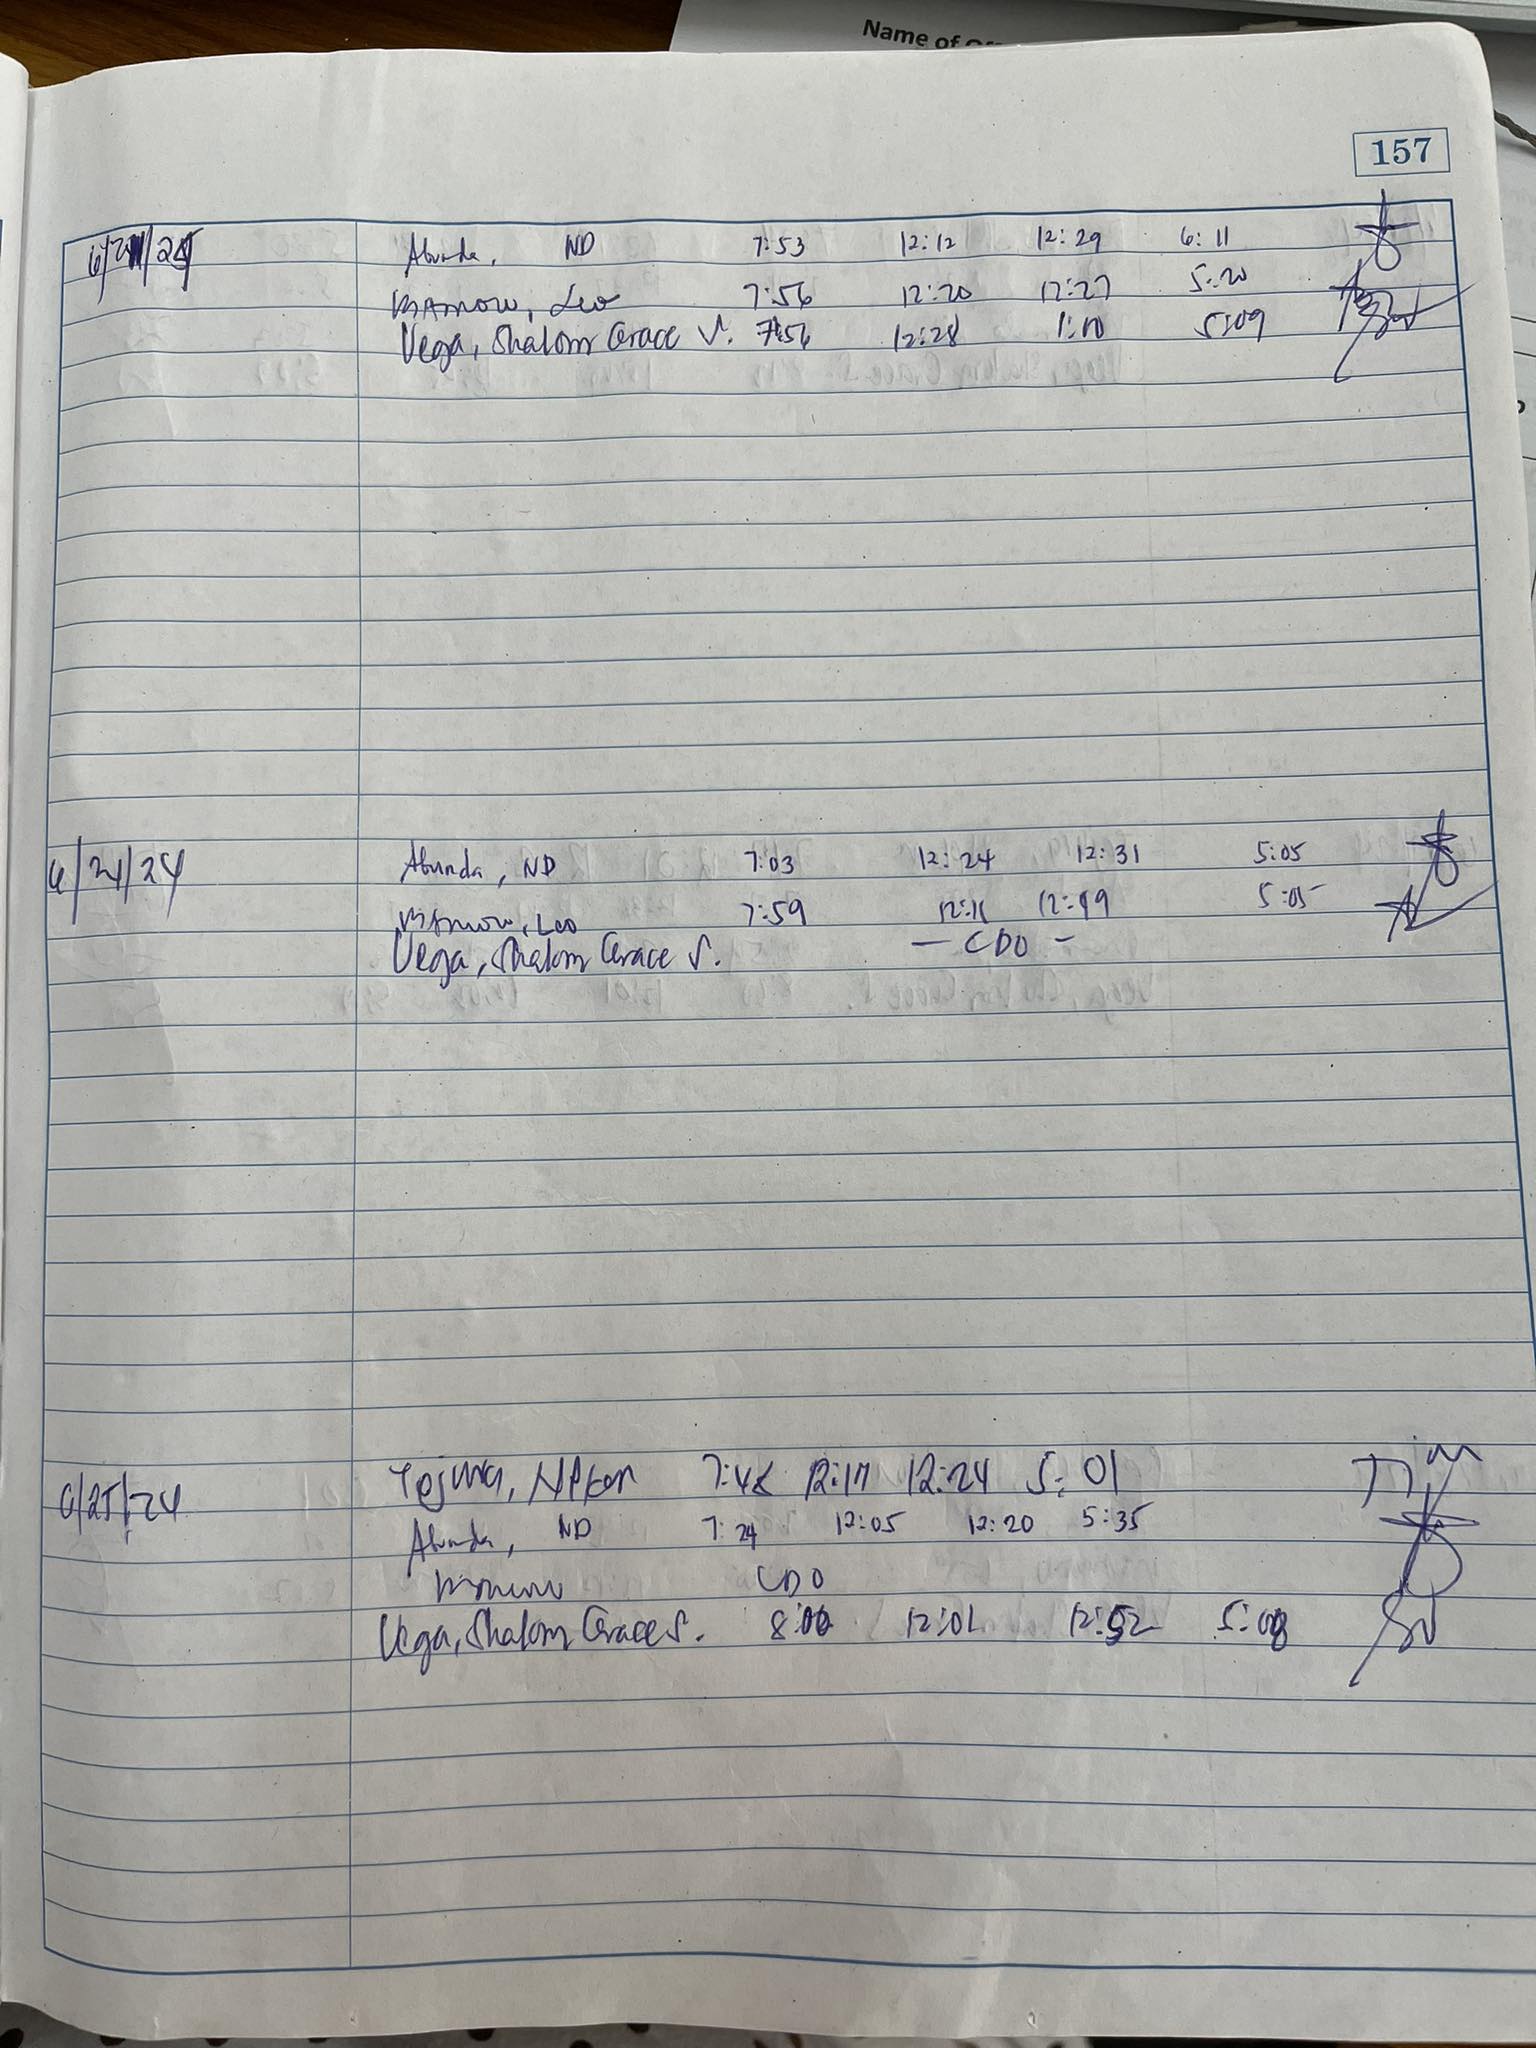 Name of
157
Abunda, ND 7:53 12:12 12:29 6:11
Leo 7:56 12:20 12:27 5:20
Vega, Shalom Grace S. 7:56 12:28 1:10 5:09
6/24/24 Abunda, ND 7:03 12:24 12:31 5:05
Leo 7:59 12:11 12:49 5:05
Vega, Shalom Grace S. - CDO -
6/25/24 12:17 12:24 5:01
Abunda, ND 7:24 12:05 12:20 5:35
CDO
Vega, Shalom Grace S. 8:00 12:01 12:52 5:08